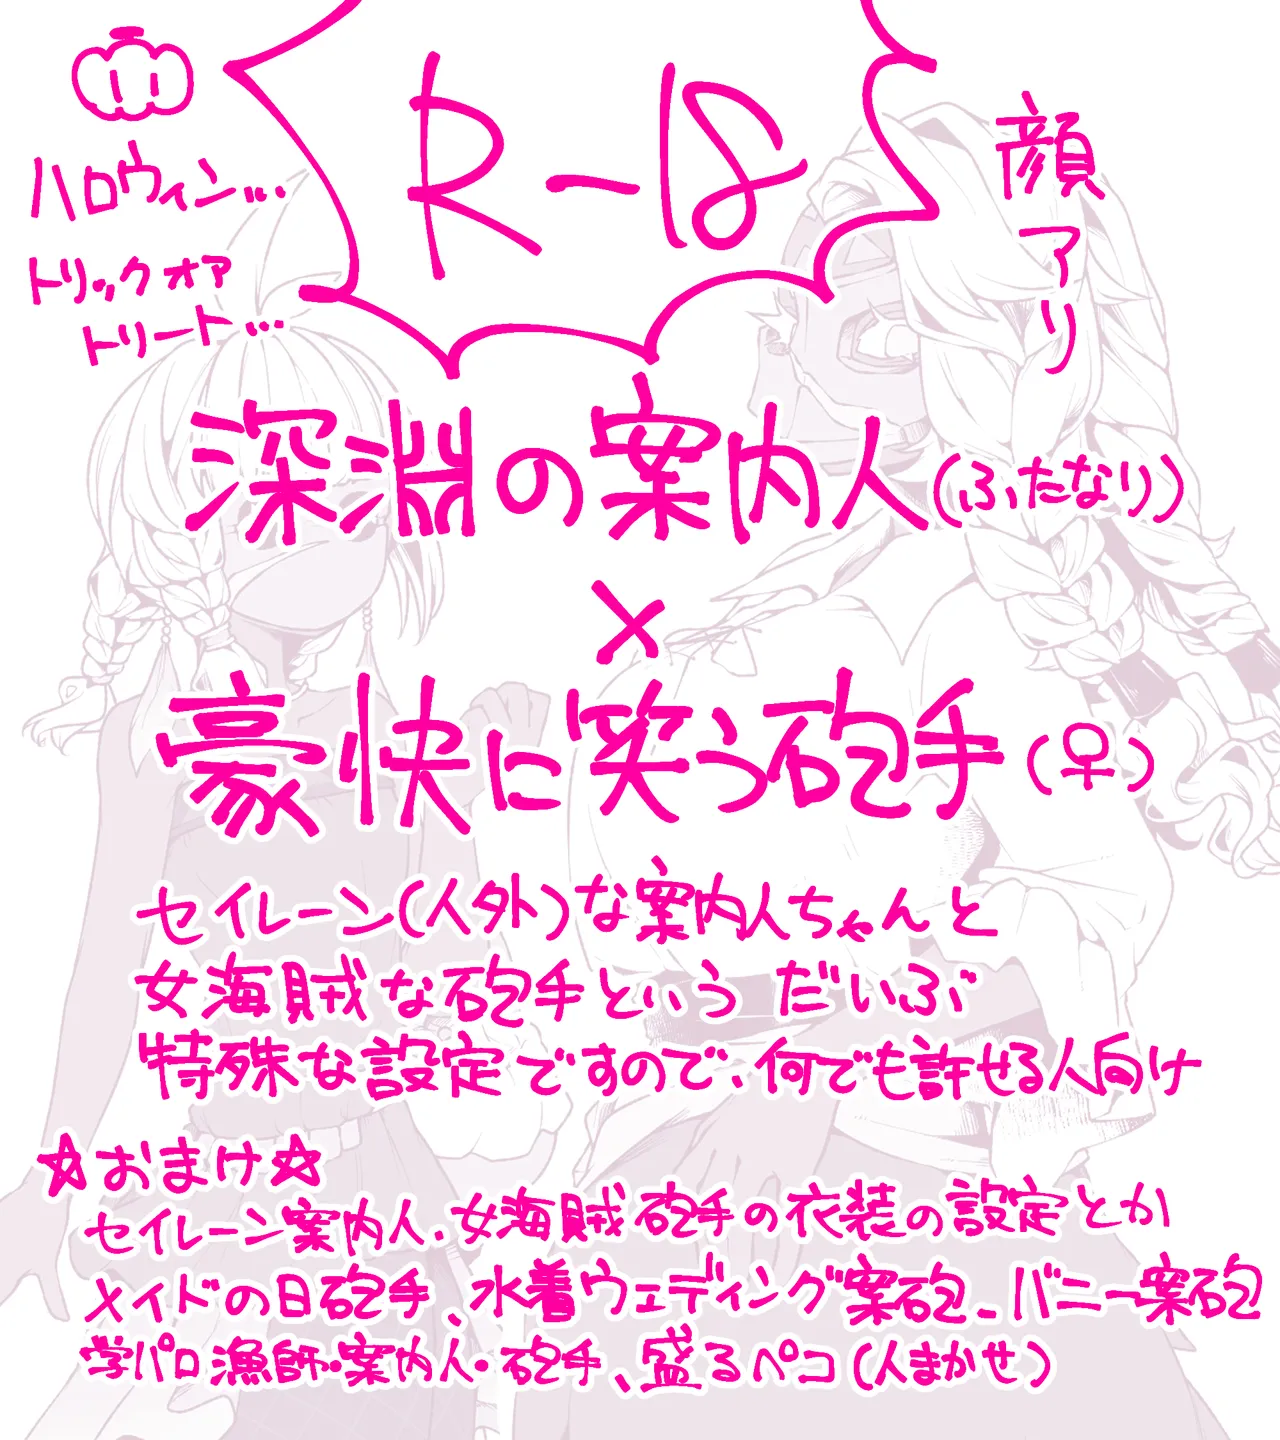 R-18
顔アリ
ハロウィン...
トリックオア
トリート...
深淵の案内人(ふたなり)
×
豪快に笑う砲手(♀)
セイレーン(人外)な案内人ちゃんと
女海賊な砲手という だいぶ
特殊な設定ですので、何でも許せる人向け
☆おまけ☆
セイレーン案内人・女海賊砲手の衣装の設定とか
メイドの日砲手、水着ウェディング案砲、バニー案砲
学パロ漁師・案内人・砲手、盛るペコ(人まかせ)